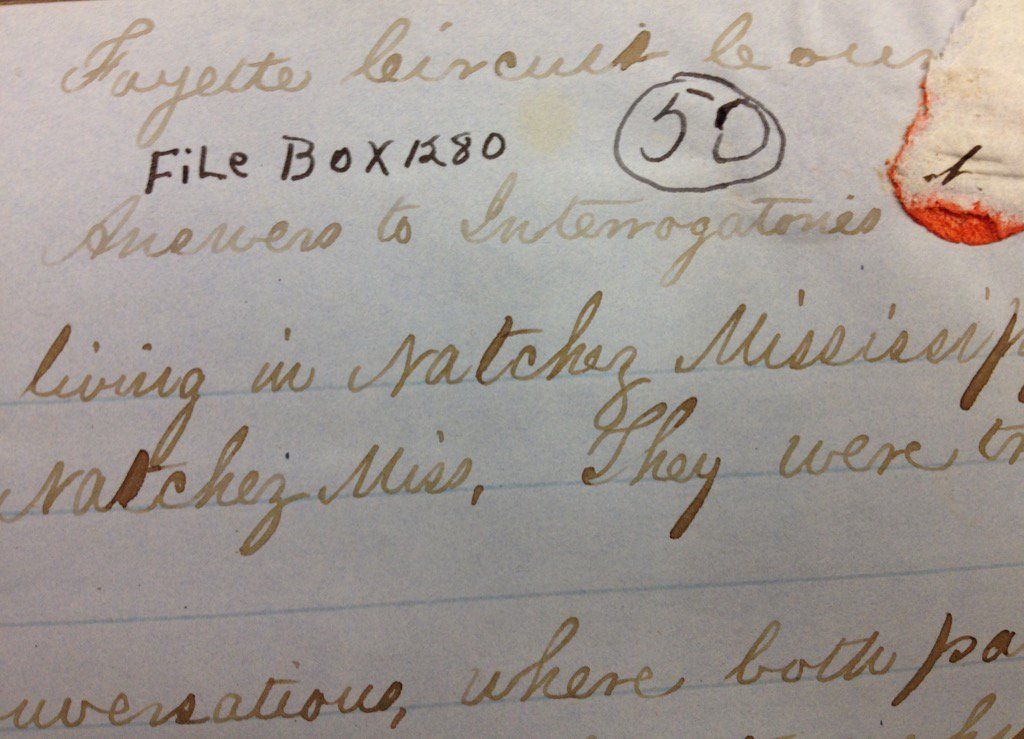 Fayette Circuit Cour
FiLe Box 1280
50
Answers to Interrogatories
living in Natchez Mississip
Natchez Miss. They were tr
nversations, where both pa